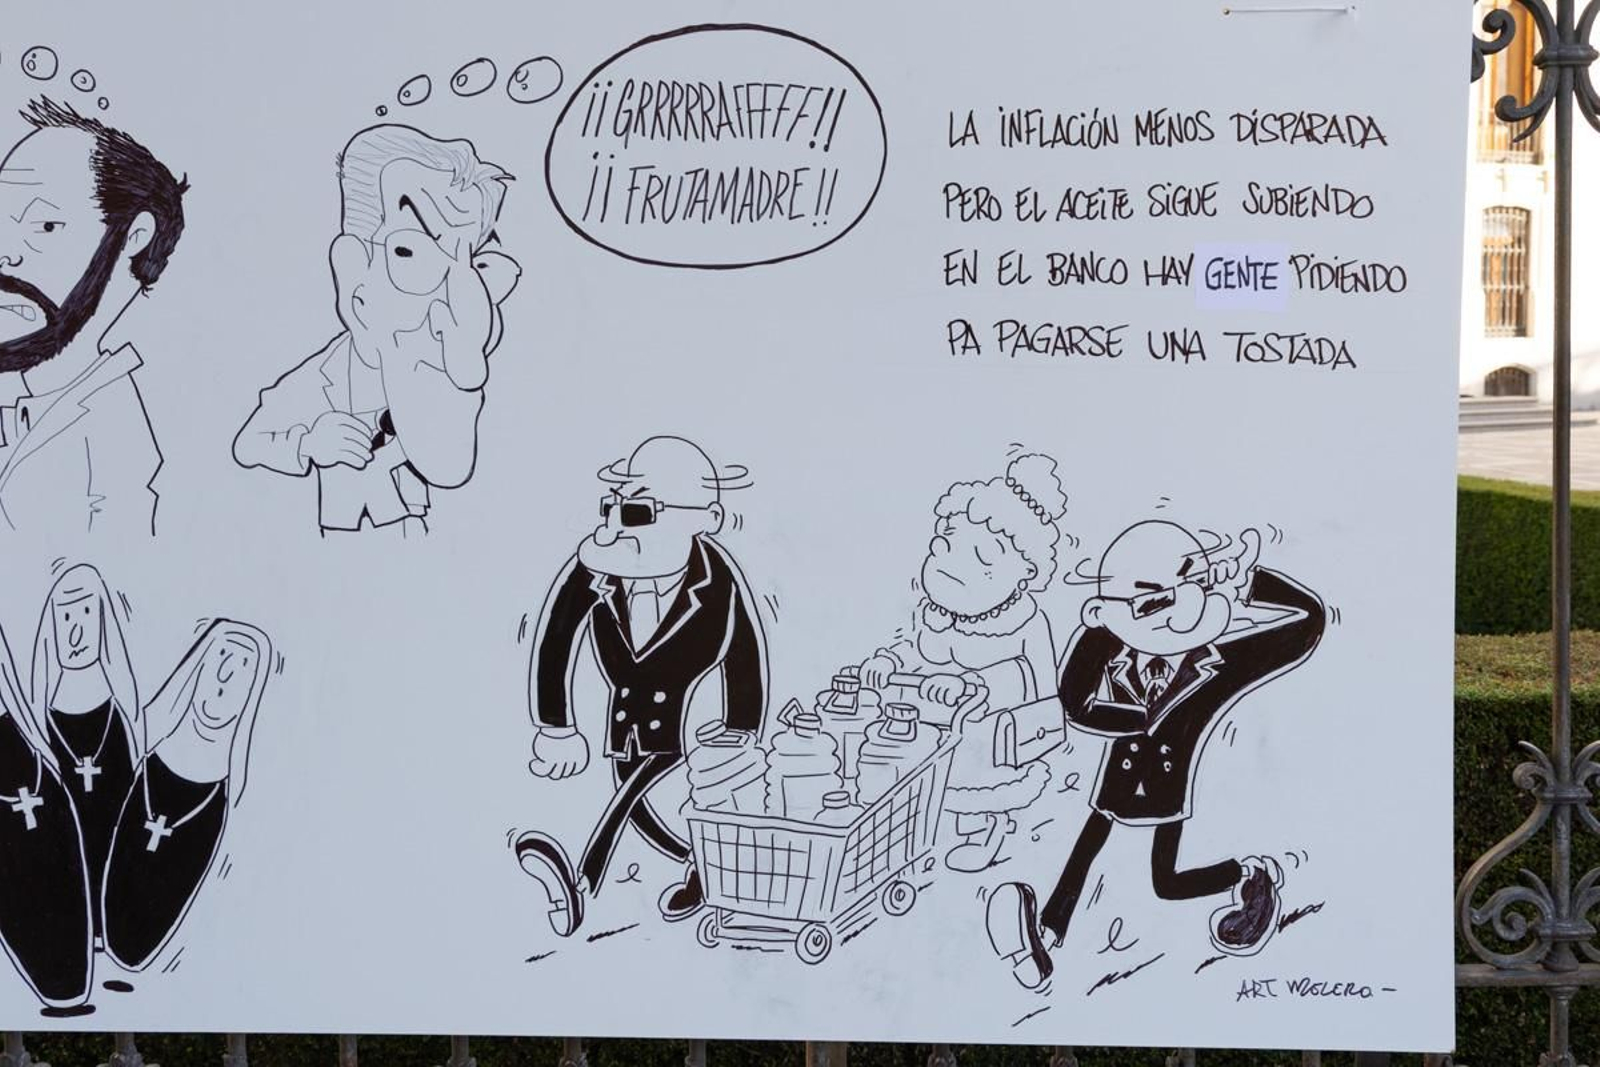 ¡¡GRRRRRAFFFFF!!
¡¡FRUTAMADRE!!
LA INFLACIÓN MENOS DISPARADA
PERO EL ACEITE SIGUE SUBIENDO
EN EL BANCO HAY GENTE PIDIENDO
PA PAGARSE UNA TOSTADA
ART MOLERO